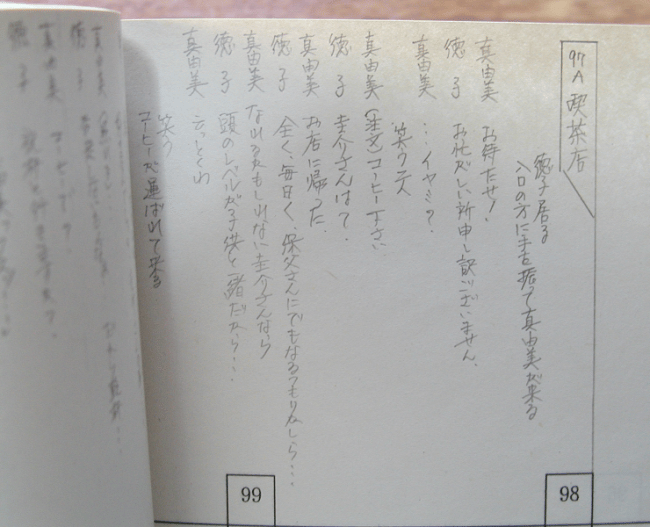 97A 喫茶店
徳子居る
入口の方に手を振って真由美が来る
真由美 お待たせ!
徳子 お忙がしい所申し訳ございません。
真由美 …イヤミ?
笑う二人
真由美 (注文)コーヒー下さい
徳子 圭介さんは?
真由美 お店に帰った。
徳子 全く、毎日く、保父さんにでもなるつもりかしら…
真由美 なれるかもしれない圭介さんなら
徳子 頭のレベルが子供と一緒だから…
真由美 言っとくわ
笑う
コーヒーが運ばれて来る
真由美
徳子
真由美
徳子
98
99